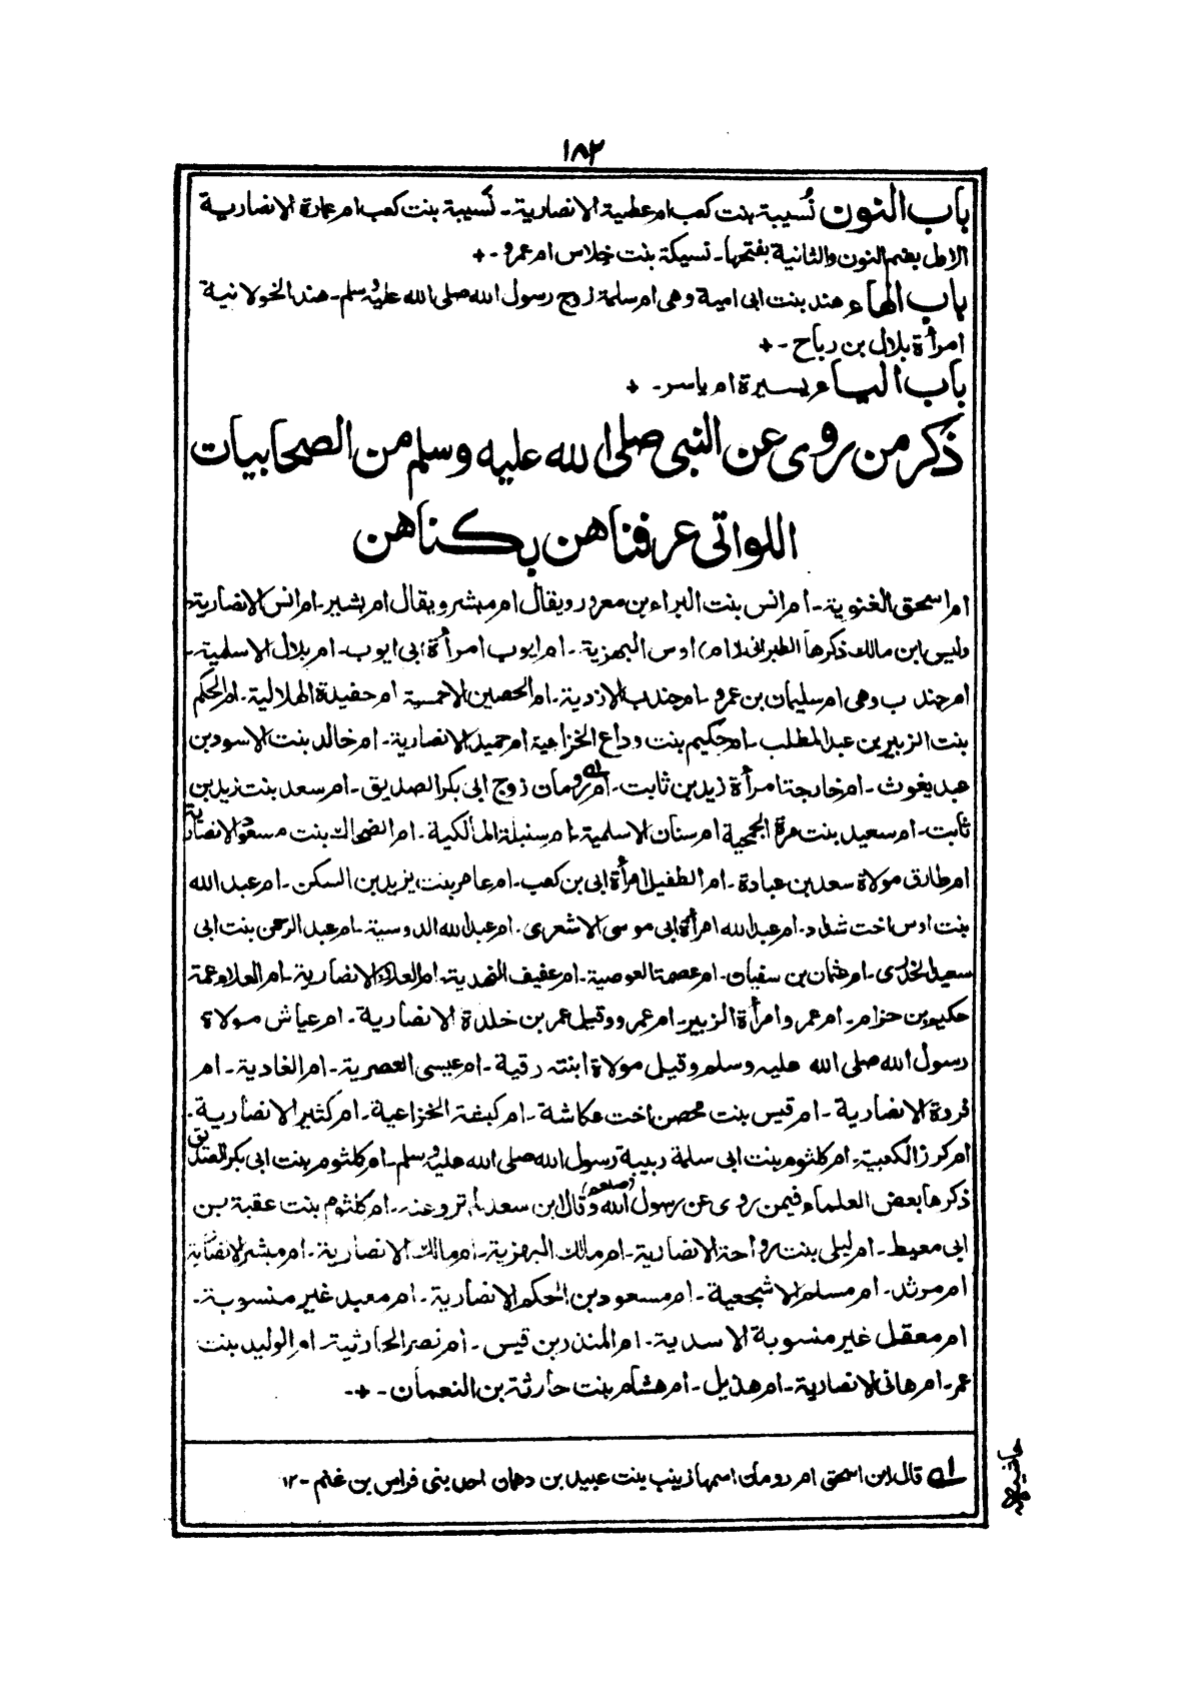 ١٨٢
باب النون نُسيبة بنت كعب ام عطية الانصارية۔ نَسيبة بنت كعب ام عمارة الانصارية
الاول بضم النون والثانية بفتحها۔ نسيكة بنت خلاس ام عمرو۔+
باب الهاء هند بنت ابى امية وهى ام سلمة زوج رسول الله صلى الله عليه وسلم۔ هند الخولانية
امرأة بلال بن رباح۔+
باب الياء يسيرة ام ياسر۔ +
ذكر من روى عن النبى صلى الله عليه وسلم من الصحابيات
اللواتى عرفناهن بكناهن
ام اسحق الغنوية۔ ام انس بنت البراء بن معرور ويقال ام مبشر ويقال ام بشير۔ ام انس الانصارية
وليس ابن مالك ذكرها الطبرانى ام اوس البهزية۔ ام ايوب امرأة ابى ايوب۔ ام بلال الاسلمية۔
ام جندب وهى ام سليمان بن عمرو۔ ام جندب الازدية۔ ام الحصين الاحمسية ام حفيدة الهلالية۔ ام الحكم
بنت الزبير بن عبد المطلب۔ ام حكيم بنت وداع الخزاعية ام حميد الانصارية۔ ام خالد بنت الاسود بن
عبد يغوث۔ ام خارجة امرأة زيد بن ثابت۔ ام رومان زوج ابى بكر الصديق۔ ام سعد بنت زيد بن
ثابت۔ ام سعيد بنت مرة الجمحية ام سنان الاسلمية۔ ام سنبلة المالكية۔ ام الضحاك بنت مسعود الانصارية
ام طارق مولاة سعد بن عبادة۔ ام الطفيل امرأة ابى بن كعب۔ ام عامر بنت يزيد بن السكن۔ ام عبد الله
بنت اوس اخت شداد۔ ام عبد الله امرأة ابى موسى الاشعرى۔ ام عبد الله الدوسية۔ ام عبد الرحمن بنت ابى
سعيد الخدرى۔ ام عثمان بن سفيان۔ ام عصمة العوصية۔ ام عفيف النهدية۔ ام العلاء الانصارية۔ ام العلاء عمة
حكيم بن حزام۔ ام عمرو امرأة الزبير۔ ام عمرو وقيل عمر بن خلدة الانصارية۔ ام عياش مولاة
رسول الله صلى الله عليه وسلم وقيل مولاة ابنته رقية۔ ام عيسى العصرية۔ ام الغادية۔ ام
فروة الانصارية۔ ام قيس بنت محصن اخت عكاشة۔ ام كبشة الخزاعية۔ ام كثير الانصارية۔
ام كرز الكعبية۔ ام كلثوم بنت ابى سلمة ربيبة رسول الله صلى الله عليه وسلم۔ ام كلثوم بنت ابى بكر الصديق
ذكرها بعض العلماء فيمن روى عن رسول الله (صلعم) وقال ابن سعد لم ترو عنه۔ ام كلثوم بنت عقبة بن
ابى معيط۔ ام ليلى بنت رواحة الانصارية۔ ام مالك البهزية۔ ام مالك الانصارية۔ ام مبشر الانصارية
ام مرثد۔ ام مسلم الاشجعية۔ ام مسعود بن الحكم الانصارية۔ ام معبد غير منسوبة۔
ام معقل غير منسوبة الاسدية۔ ام المنذر بن قيس۔ ام نصر الحارثية۔ ام الوليد بنت
عمر۔ ام هانى الانصارية۔ ام هذيل۔ ام هشام بنت حارثة بن النعمان۔+۔
له قال ابن اسحق ام رومان اسمها زينب بنت عبيد بن دهمان احد بنى فراس بن غنم۔١٢
حاشيه